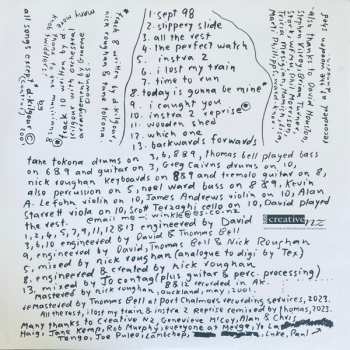 1. sept 98
2. slippery slide
3. all the rest
4. the perfect watch
5. instra 2
6. i lost my train
7. time to run
8. today is gonna be mine
9. i caught you
10. instra 2 reprise
11. wooden shed
12. which one
13. backwards forwards
all songs except
track 10 written by d.
arrangement by Graeme
Downes
track 8 written by d kilgour
nick roughan & tane tokona
also thanks to David Mitchell,
Stephen Kilroy, Brian Turner,
tane tokona drums on 3, 6, 8 & 9, thomas bell played bass
on 6 & 9 and guitar on 3, Greg Cairns drums on 10,
nick roughan keyboards on 8 & 9 and tremolo guitar on 8,
also percusion on 5, noel ward bass on 8 & 9, Kevin
A. Lefohn violin on 10, James Andrews violin on 10, Alan
Starrett viola on 10, Scot Terzaghi cello on 10, David played
the rest.
email me - winkle@es.co.nz
creative nz
1, 2, 4, 5, 7, 9, 11, 12 & 13 engineered by David
3, 6, 10 engineered by David & Thomas Bell
9, engineered by David, Thomas Bell & Nick Roughan
5, mixed by nick roughan (analogue to digi by Tex)
8, engineered & created by nick roughan
13, mixed by Jo contag (plus guitar & perc. processing)
8 & 12 recorded in AK.
Mastered by nick roughan, auckland, may, 2001
remastered by Thomas Bell at Port Chalmers recording services, 2023.
All the rest, i lost my train & instra 2 Reprise remixed by thomas, 2023.
Many thanks to Creative NZ, Genevieve McCoy, Alan & Chris
Haig, Jane Kemp, Rob Murphy, everyone at Merge, Yo La
Tengo, Joe Puleo, Lambchop, Luke, Paul